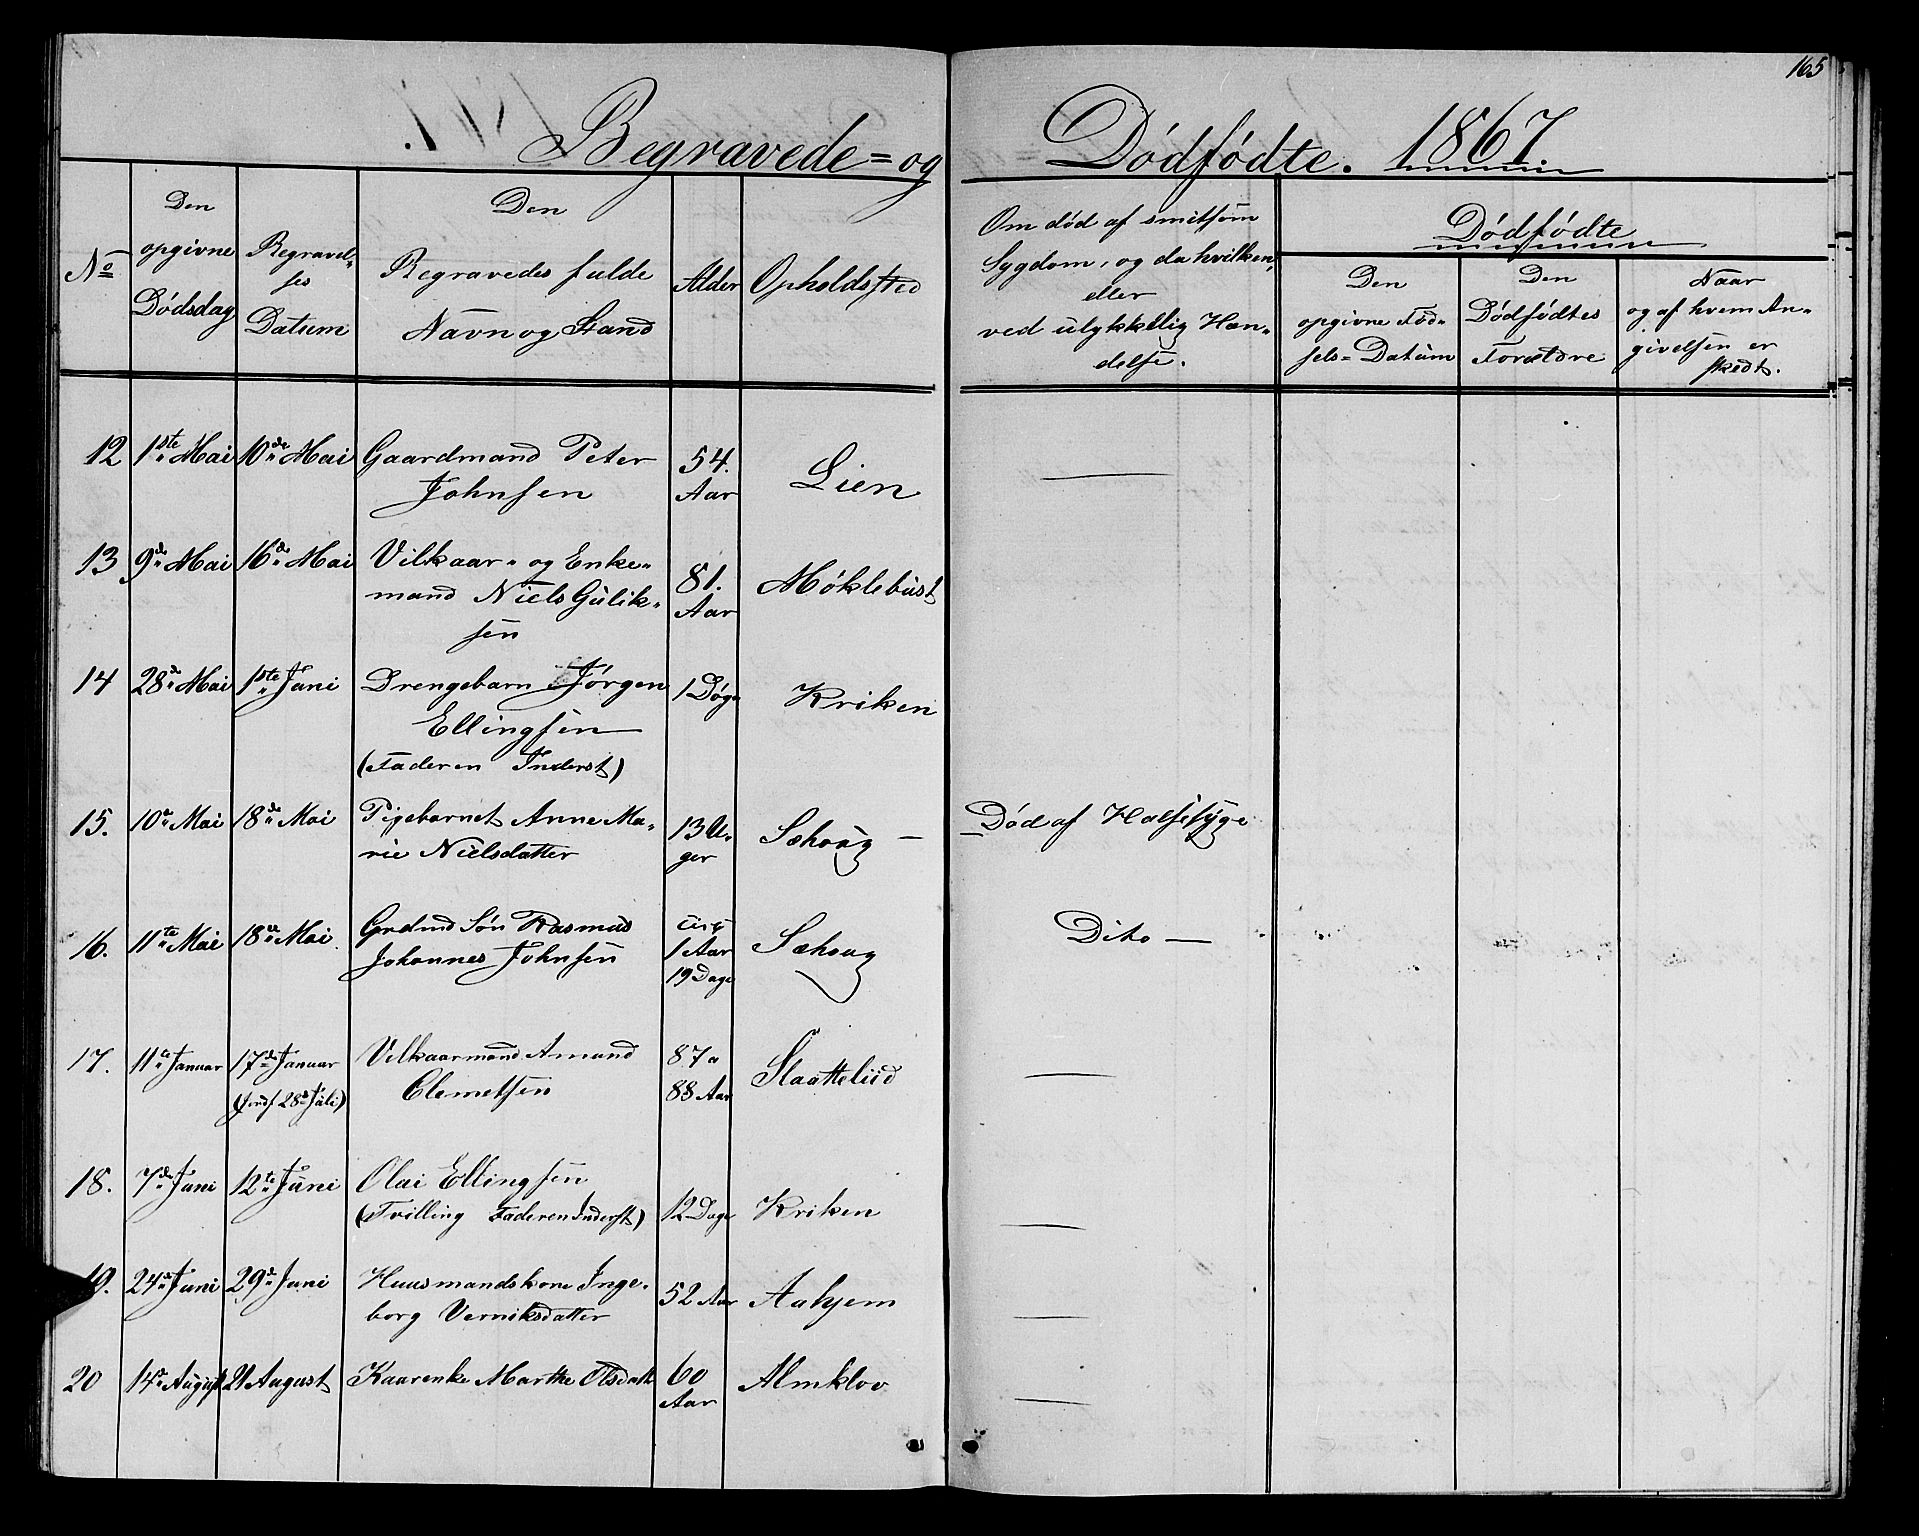 165
Begravede= og Dødfødte. 1867.
No
Den
opgivne
Dødsdag
Begravel„
ses
Datum
Den
Begravedes fulde
Navn og Stand
Alder
Opholdssted
Om død af smitsom
Sygdom, og da hvilken,
eller
ved ulykkelig Hæn„
delse.
Dødfødte
Den
opgivne Fød„
sels= Datum
Den
Dødfødtes
Forældre
Naar
og af hvem An„
givelsen er
skedt.
12 1ste Mai 10de Mai Gaardmand Peter 54. Lien —
Johnsen Aar
13 9de Mai 16de Mai Vilkaar„ og Enke„ 81. Møklebust
mand Niels Gulik„ Aar
sen
14 28de Mai 1ste Juni Drengebarn Jørgen 1 Døgn Kriken
Ellingsen
(Faderen Inderst)
15. 10de Mai 18de Mai Pigebarnet Anne Ma„ 13 U„ Sæhoug — Død af Halsesyge
rie Nielsdatter ger
16. 11te Mai 18de Mai Grdmd Søn Rasmus Sæhoug Dito —
Johannes Johnsen 1 Aar
19 Dage
17. 11te Januar 17de Januar Vilkaarmand Amund 87 a Slaattelid —
(jvnf 28de Juli) Clemetsen 88 Aar
18. 7de Juni 12te Juni Olai Ellingsen
(Tvilling Faderen Inderst) 12 Dage Kriken —
19. 24de Juni 29de Juni Huusmandskone Inge„ 52 Aar Aahjem —
borg Verniksdatter
20 14de August 21 August Kaarenke Marthe Olsdatt 60 Almklov —
Aar